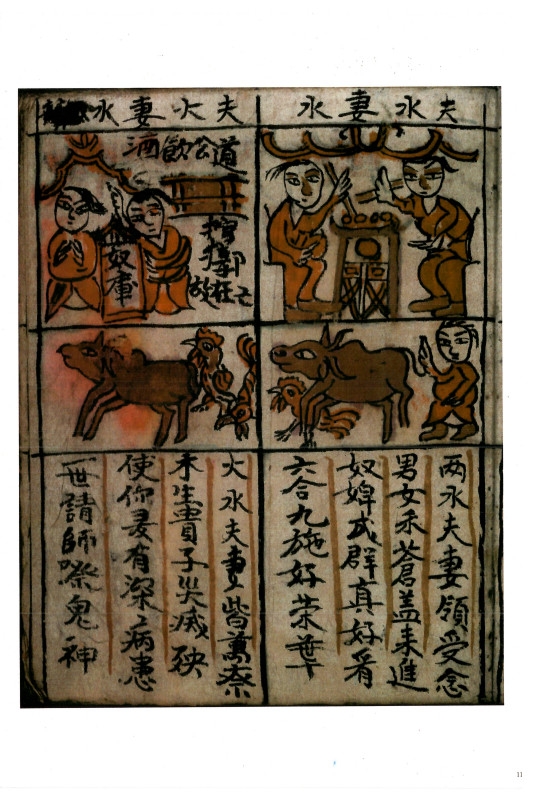 夫水妻水
两水夫妻領受念
男女禾蒼盖来進
奴婢成群真好看
六合九施好荣華
夫火妻水
道公飲酒
奴庫
火水夫妻皆萬
禾生貴子災滅殃
使你有深病患
一世請師祭鬼神
11